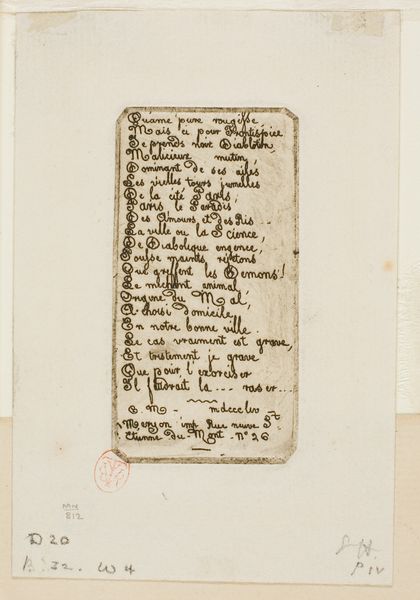 Qu'ame pure rougisse
Mais ci pour Frontispice
Je prends noir Diablotin,
Malicieux mutin,
Dominant de ses ailes
Les vielles tours jumelles
De la cité Paris,
Paris le Paradis
Des Amours et des Ris ...
La ville ou la Science,
De Diabolique engence,
Pousse maints rejetons
Que griffent les Démons!
Le méchant animal
Origine du Mal,
A choisi domicile
En notre bonne ville.
Le cas vraiment est grave,
Et tristement je grave
Que pour l'exorciser
Il faudrait la ... raser ...
C. M - mdccclіv
Meryon imp. Rue neuve St
Etienne du Mont - No 26
MN
812
D 20
B. 32. W 4
P IV